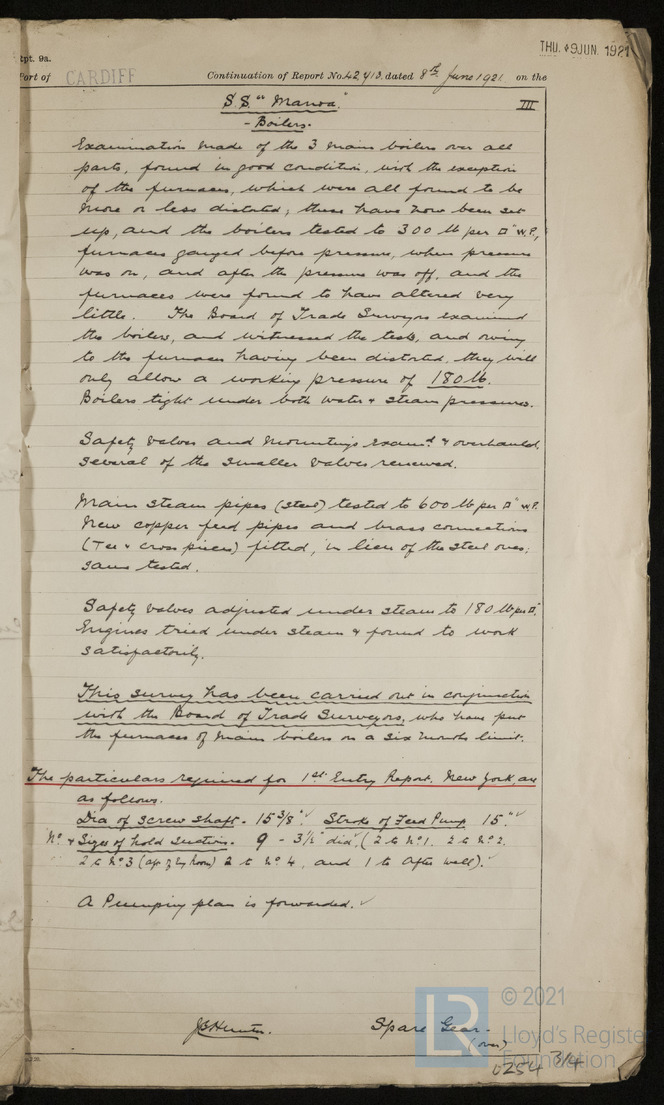 THU. 9 JUN. 1921
Rpt. 9a.
Port of CARDIFF Continuation of Report No. 42,413. dated 8th June 1921. on the
S.S. "Marwa" III
- Boilers -
Examination made of the 3 main boilers over all
parts, found in good condition, with the exception
of the furnaces, which were all found to be
more or less distorted; these have now been set
up, and the boilers tested to 300 lb per □" W.P.,
furnaces gauged before pressure, when pressure
was on, and after the pressure was off, and the
furnaces were found to have altered very
little. The Board of Trade Surveyors examined
the boilers, and witnessed the tests, and owing
to the furnaces having been distorted, they will
only allow a working pressure of 180 lb.
Boilers tight under both water & steam pressures.
Safety valves and mountings examd. & overhauled,
several of the smaller valves renewed.
Main steam pipes (steel) tested to 600 lb per □" W.P.
New copper feed pipes and brass connections
(Tee & cross pieces) fitted, in lieu of the steel ones;
same tested.
Safety valves adjusted under steam to 180 lb per □".
Engines tried under steam & found to work
satisfactorily.
This survey has been carried out in conjunction
with the Board of Trade Surveyors, who have put
the furnaces of main boilers on a six months limit.
The particulars required for 1st Entry Report, New York, are
as follows.
Dia of screw shaft - 15 3/8" Stroke of Feed Pump 15"
No. & Sizes of hold suctions - 9 - 3½" dia. (2 to No 1. 2 to No 2.
2 to No 3 (aft of Eng Room) 2 to No 4, and 1 to after well).
A Pumping plan is forwarded.
J B Hunter. Spare Gear -
(over)
© 2021
LR Lloyd's Register
Foundation
0254 3/4